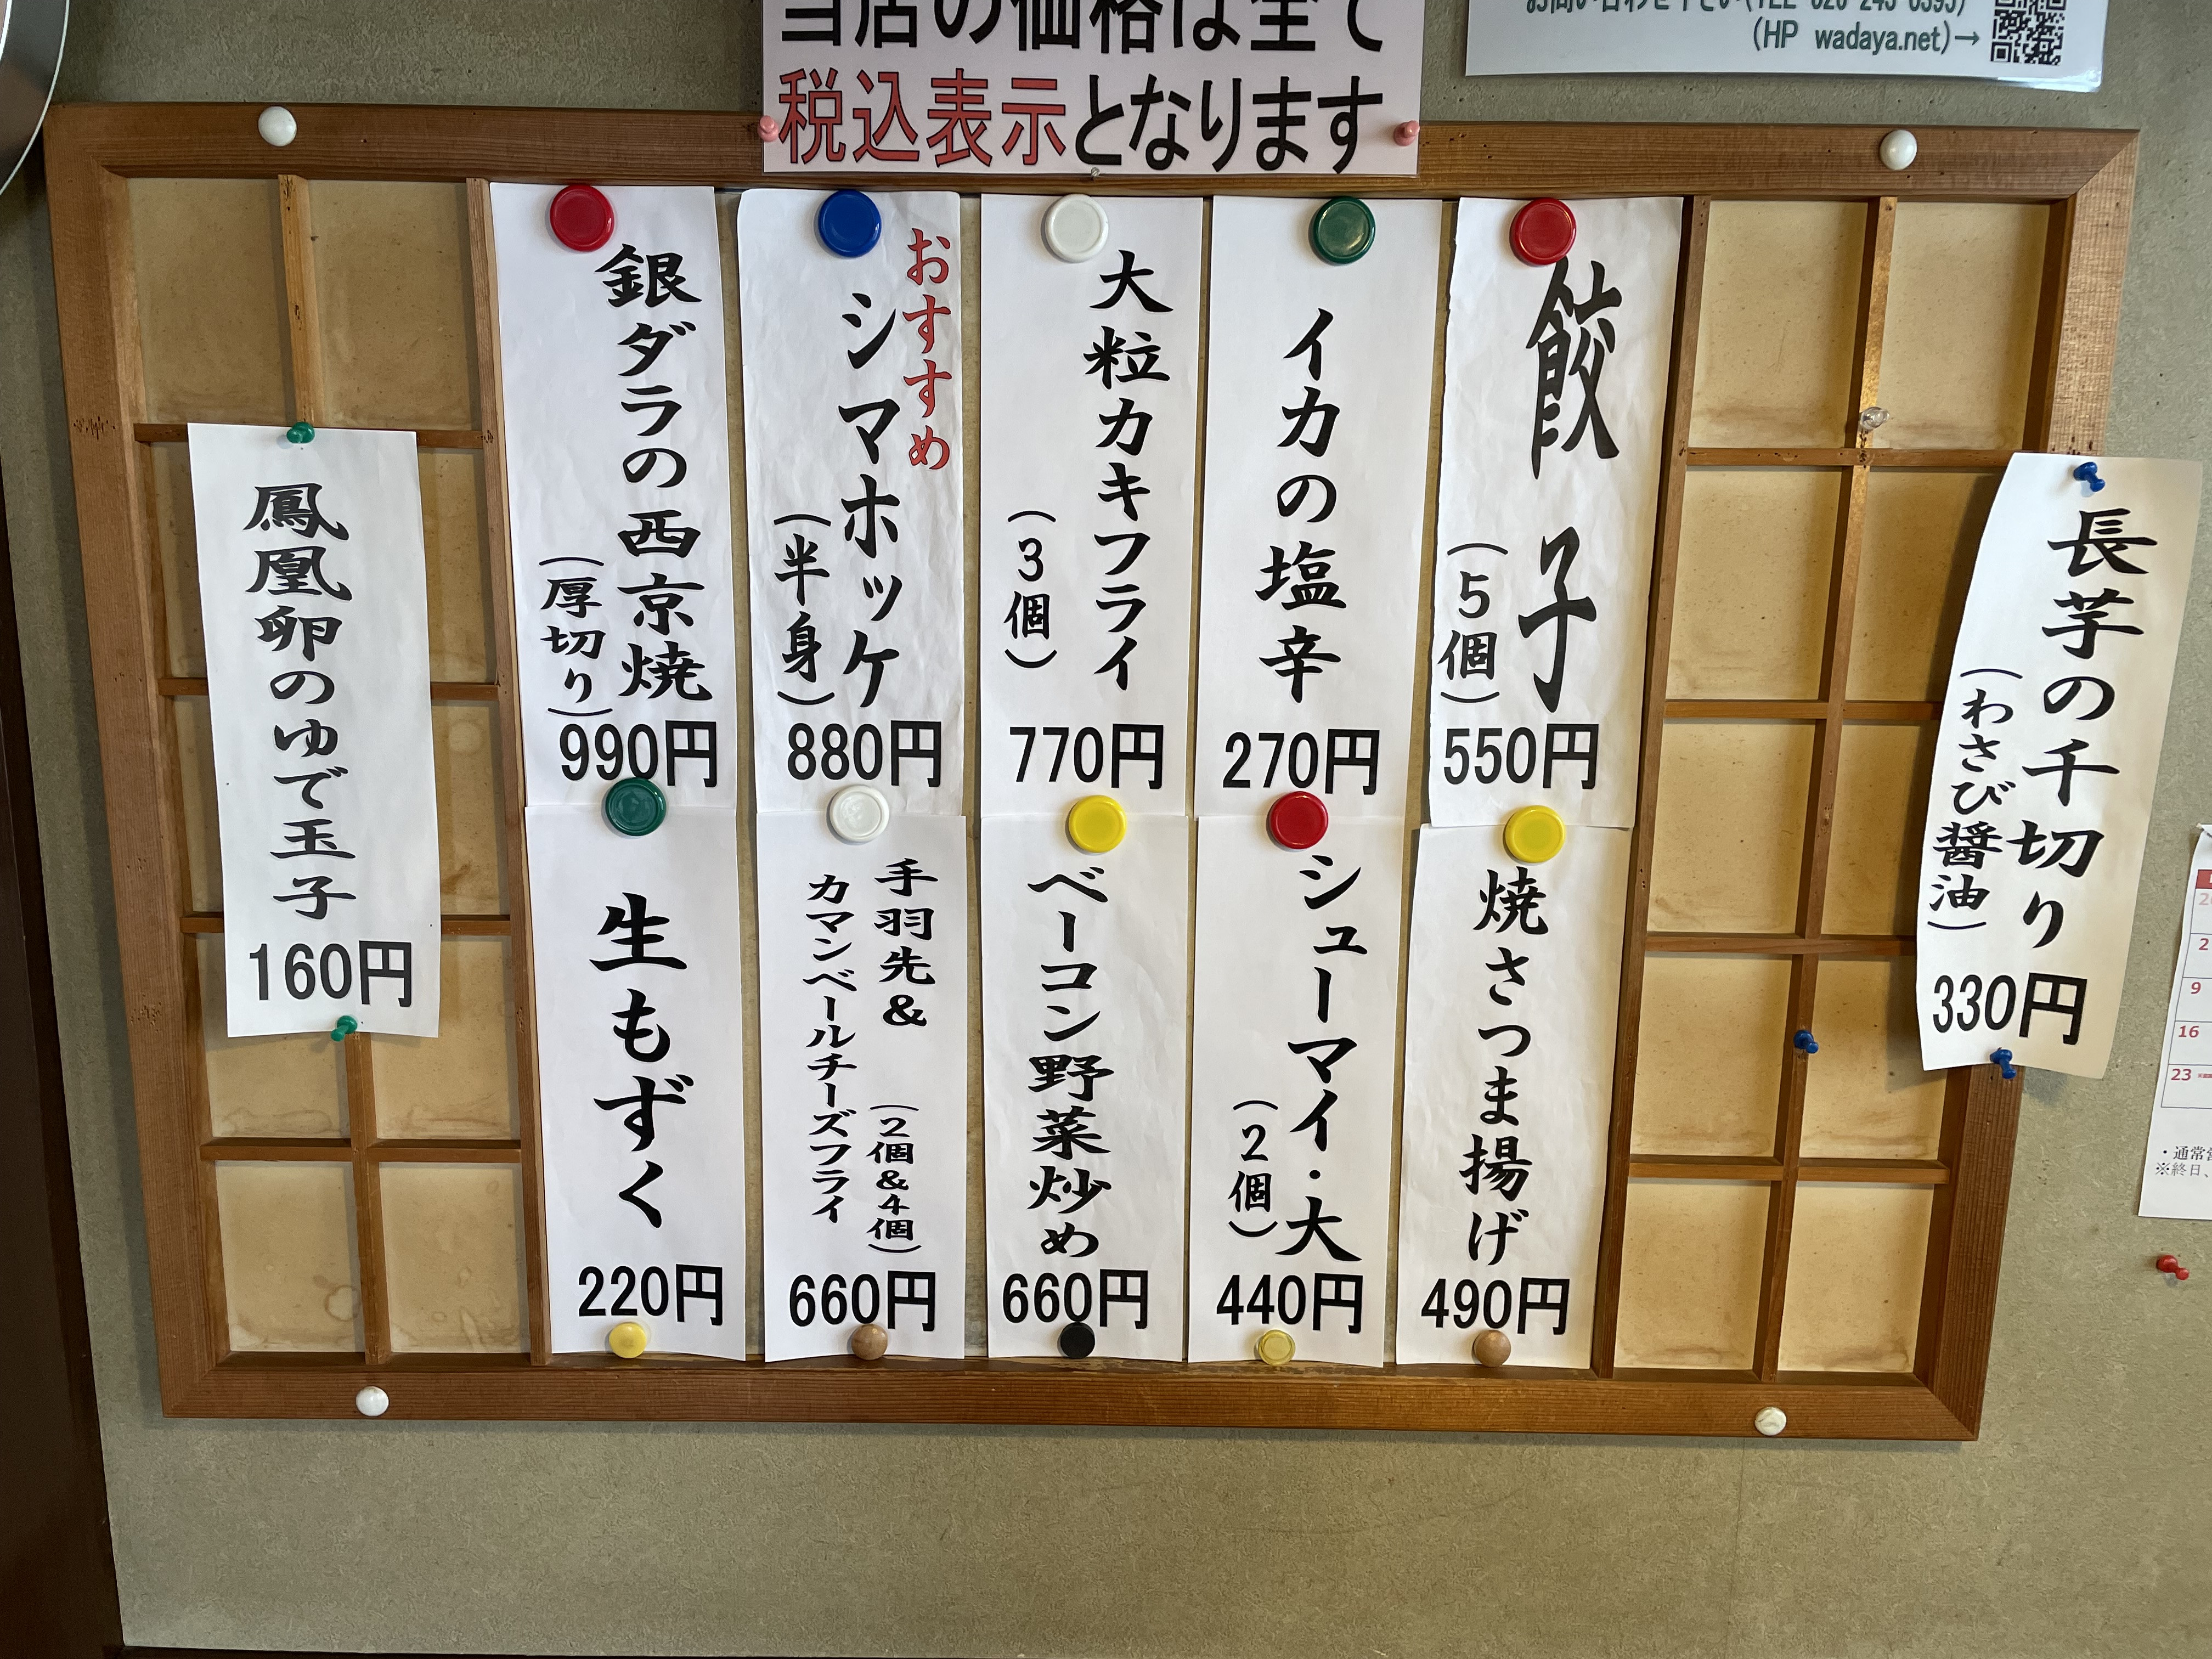 当店の価格は全て
税込表示となります
(HP wadaya.net)→
長芋の千切り
(わさび醤油)
330円
餃子
(5個)
550円
イカの塩辛
270円
大粒カキフライ
(3個)
770円
おすすめ
シマホッケ
(半身)
880円
銀ダラの西京焼
(厚切り)
990円
焼さつま揚げ
490円
シューマイ・大
(2個)
440円
ベーコン野菜炒め
660円
手羽先&
(2個&4個)
カマンベールチーズフライ
660円
生もずく
220円
鳳凰卵のゆで玉子
160円
2
9
16
23
・通常営
※終日、